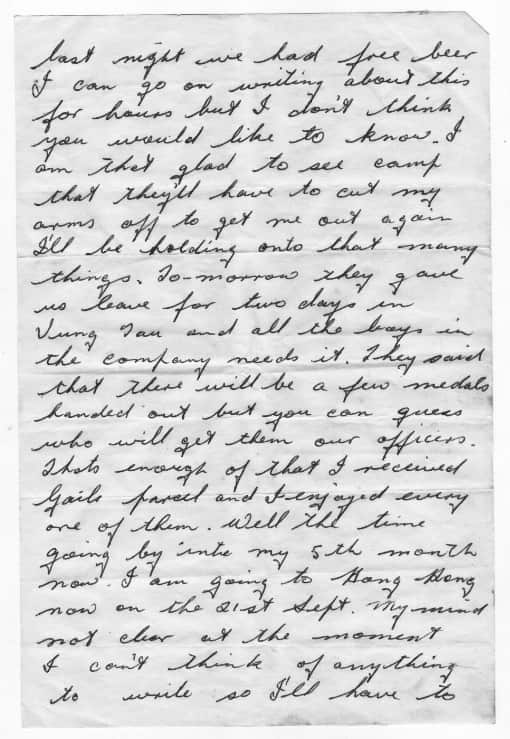 last night we had free beer
I can go on writing about this
for hours but I don't think
you would like to know. I
am that glad to see camp
that they'll have to cut my
arms off to get me out again
I'll be holding onto that many
things. To-morrow they gave
us leave for two days in
Vung Tau and all the boys in
the company needs it. They said
that there will be a few medals
handed out but you can guess
who will get them our officers.
Thats enough of that I received
Gails parcel and I enjoyed every
one of them. Well the time
going by into my 5th month
now. I am going to Hong Kong
now on the 21st Sept. My mind
not clear at the moment
I can't think of anything
to write so I'll have to